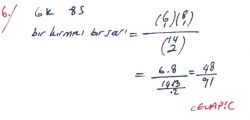 6./ 6K 8S
bir kırmızı bir sarı = (6 1)(8 1) / (14 2)
= 6.8 / (14.13 / .2) = 48 / 91
CEVAP: C